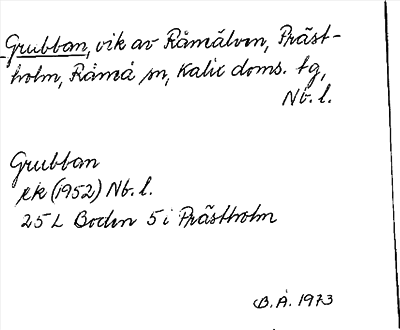 Grubban, vik av Råmälven, Präst-
holm, Råneå sn, Kalix doms. tg,
Nb. l.
Grubban
ek (1952) Nb. l.
25 L Boden 5 i Prästholm
B. Å. 1973